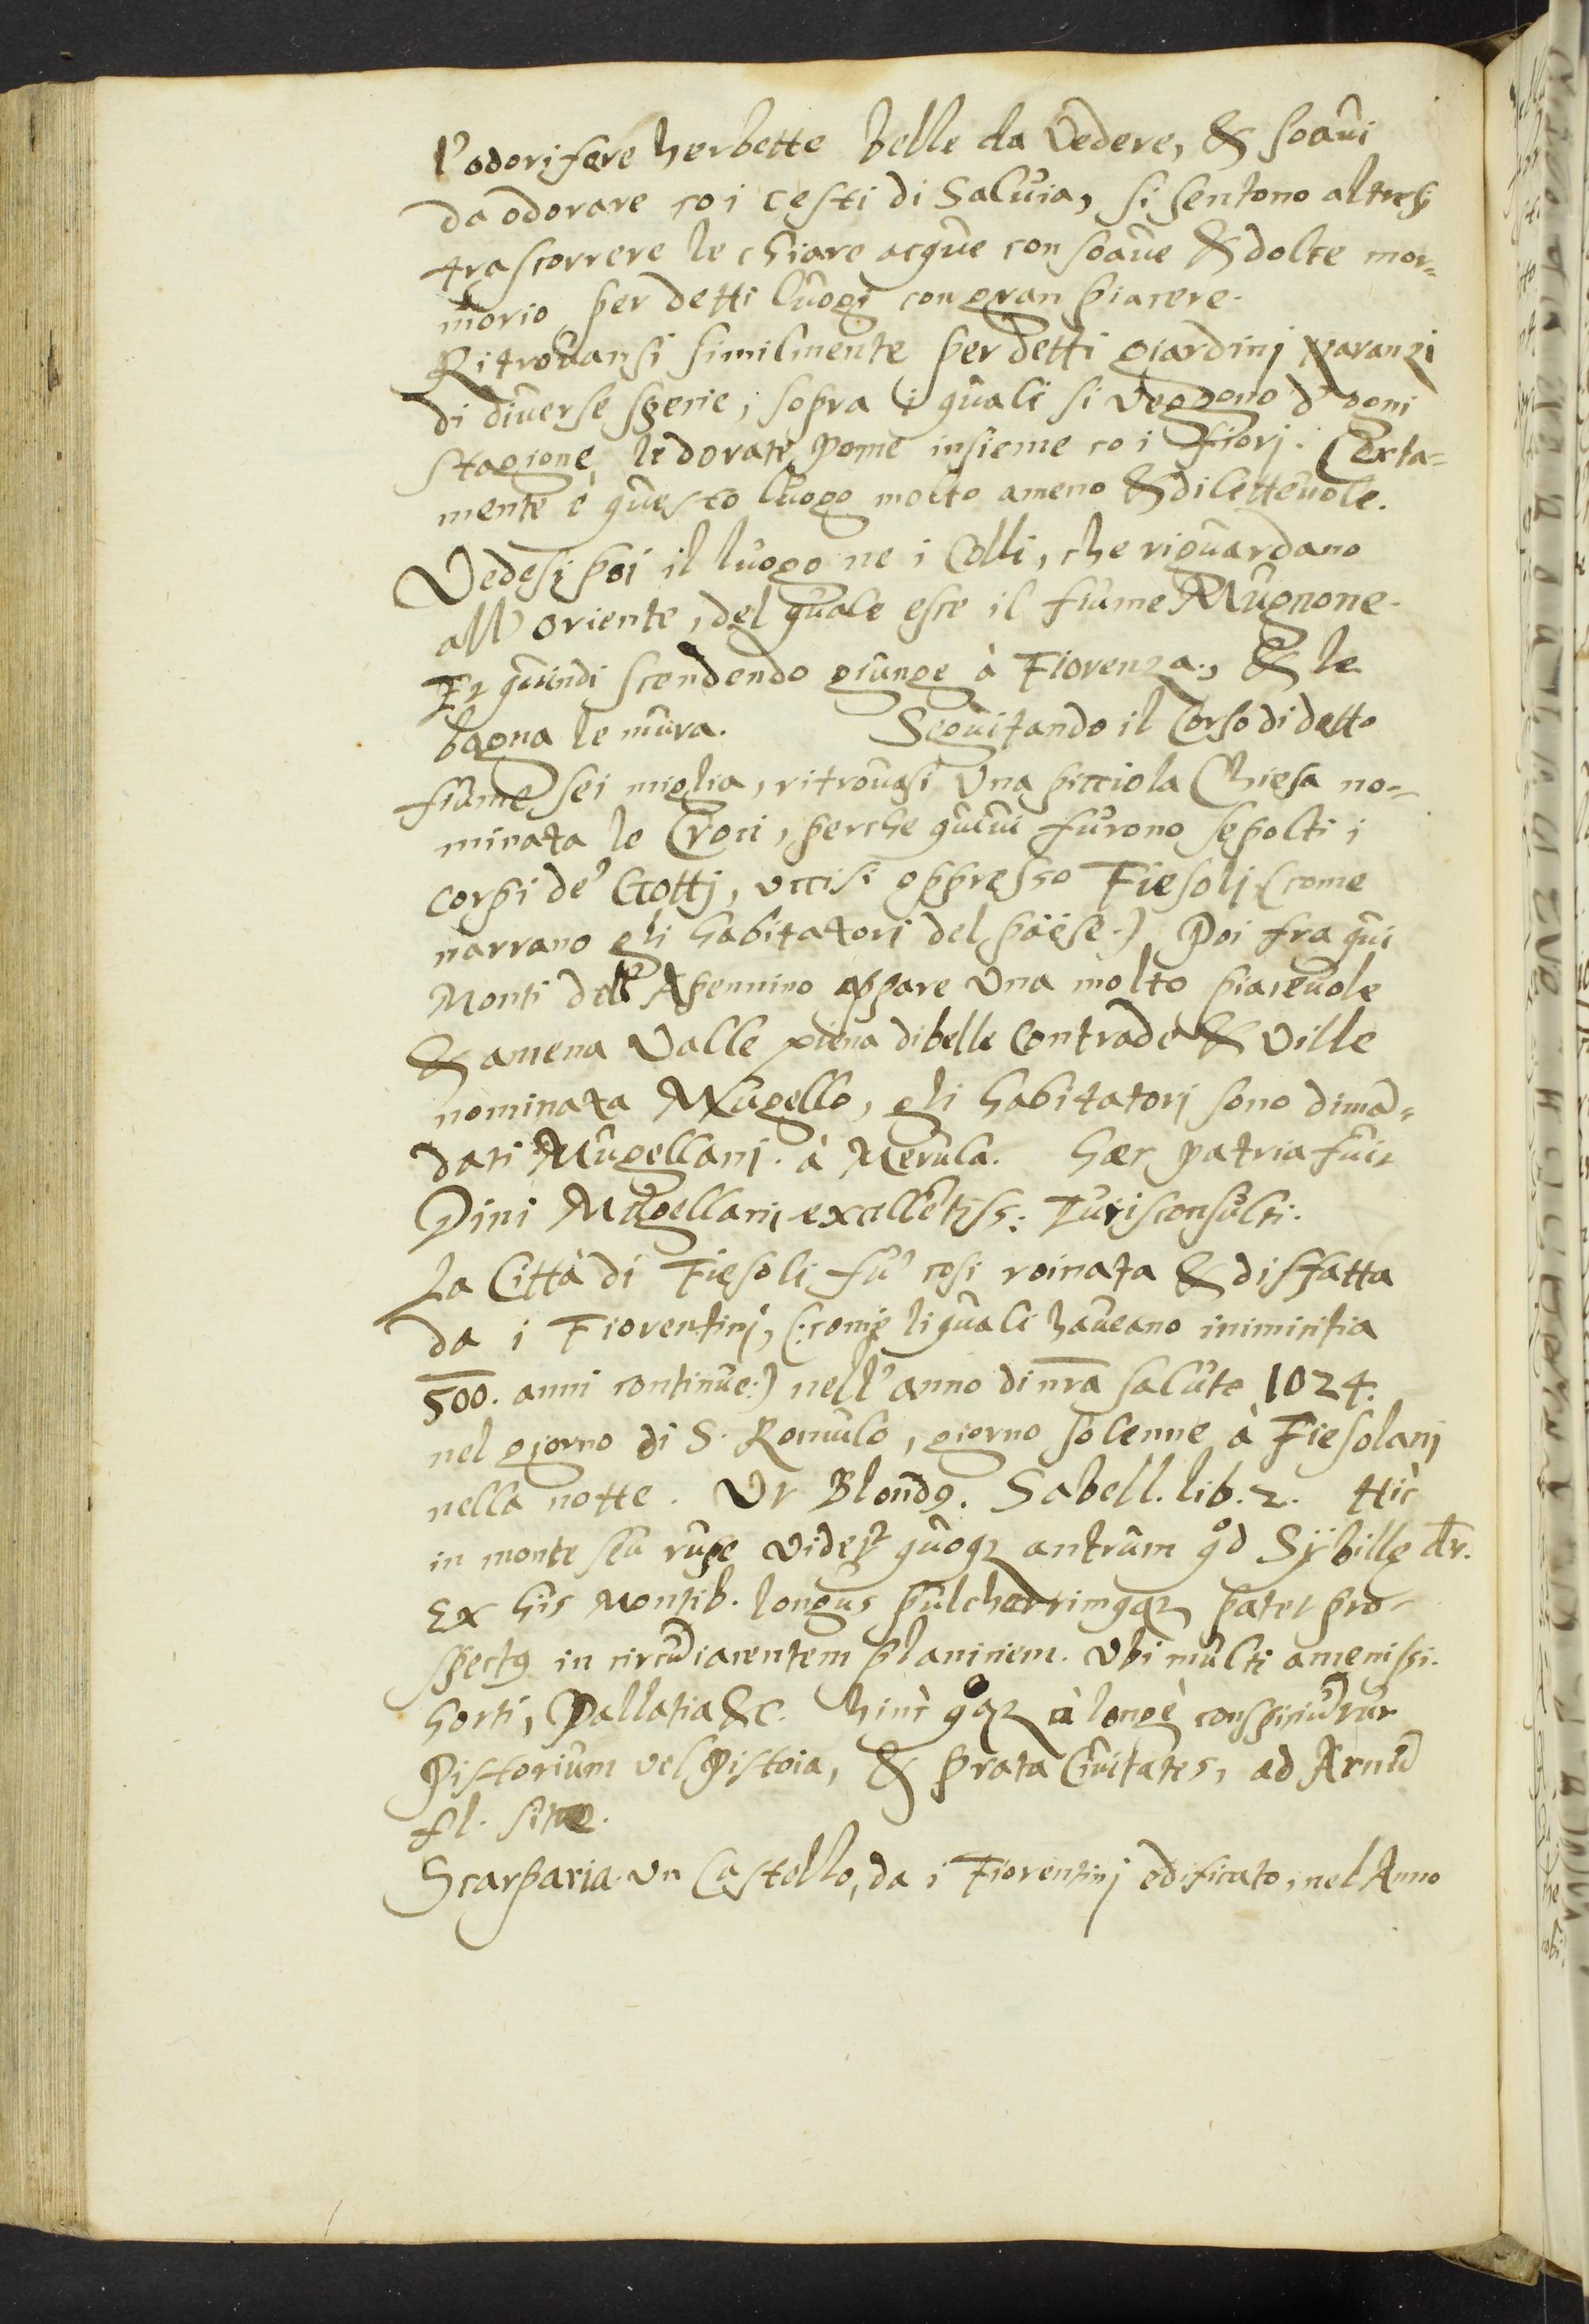 l'odorifere herbette belle da Vedere, & soaui
da odorare co i cesti di Saluia, si sentono altresi
trascorrere le chiare acque con soaue & dolce mor-
morio per detti luogi con gran piacere.
Ritrouansi similmente per detti giardinj Naranzi
di diuerse specie, sopra i quali si veggono d'ogni
stagione le dorate pome insieme co i fiorj. Certa-
mente è questo luogo molto ameno & diletteuole.
Vedesi poi il luogo ne i Colli, che riguardano
all' oriente, del quale esce il fiume Mugnone.
Et quindi scendendo giunge à Fiorenza, & le
bagna le mura. Seguitando il Corso di detto
fiume sei miglia, ritrouasi Vna picciola Chiesa no-
minata le Croci, perche quiui furono sepolti i
corpi de' Gottj, vccisi appresso Fiesolj (come
narrano gli habitatori del päese.) Poi fra qui
Monti dell' Apennino appare Vna molto piaceuole
& amena Valle piena di belle Contrade & Ville
nominata Mugello, gli habitatorj sono dimā-
dati Mugellanj. à Merula. Hæc patria fuit
Dini Mugellanj excellētiss: Iurisconsulti.
La Città di Fiesoli fu' cosi roinata & disfatta
da i Fiorentinj, (:come li quali haueano inimicitia
500. anni continue:) nell' anno di nr̄a salute 1024.
nel giorno di S. Romulo, giorno solenne à Fiesolanj
nella notte. Vt Blond9. Sabell. lib. 2. Hic
in monte seu rupe videt quoq3 antrum qd Sÿbillę dr.
Ex his Montib. longus pulcherrim9q3 patet pro-
spect9 in circūiacentem planiciem. Vbi multi amenissi.
horti, Pallatia &c. hinc qq3 à longè conspiciūtur
Pistorium vel Pistoia, & prata Ciuitates, ad Arnū
fl. sitæ.
Scarparia vn Castello, da i Fiorentinj edificato, nel Anno